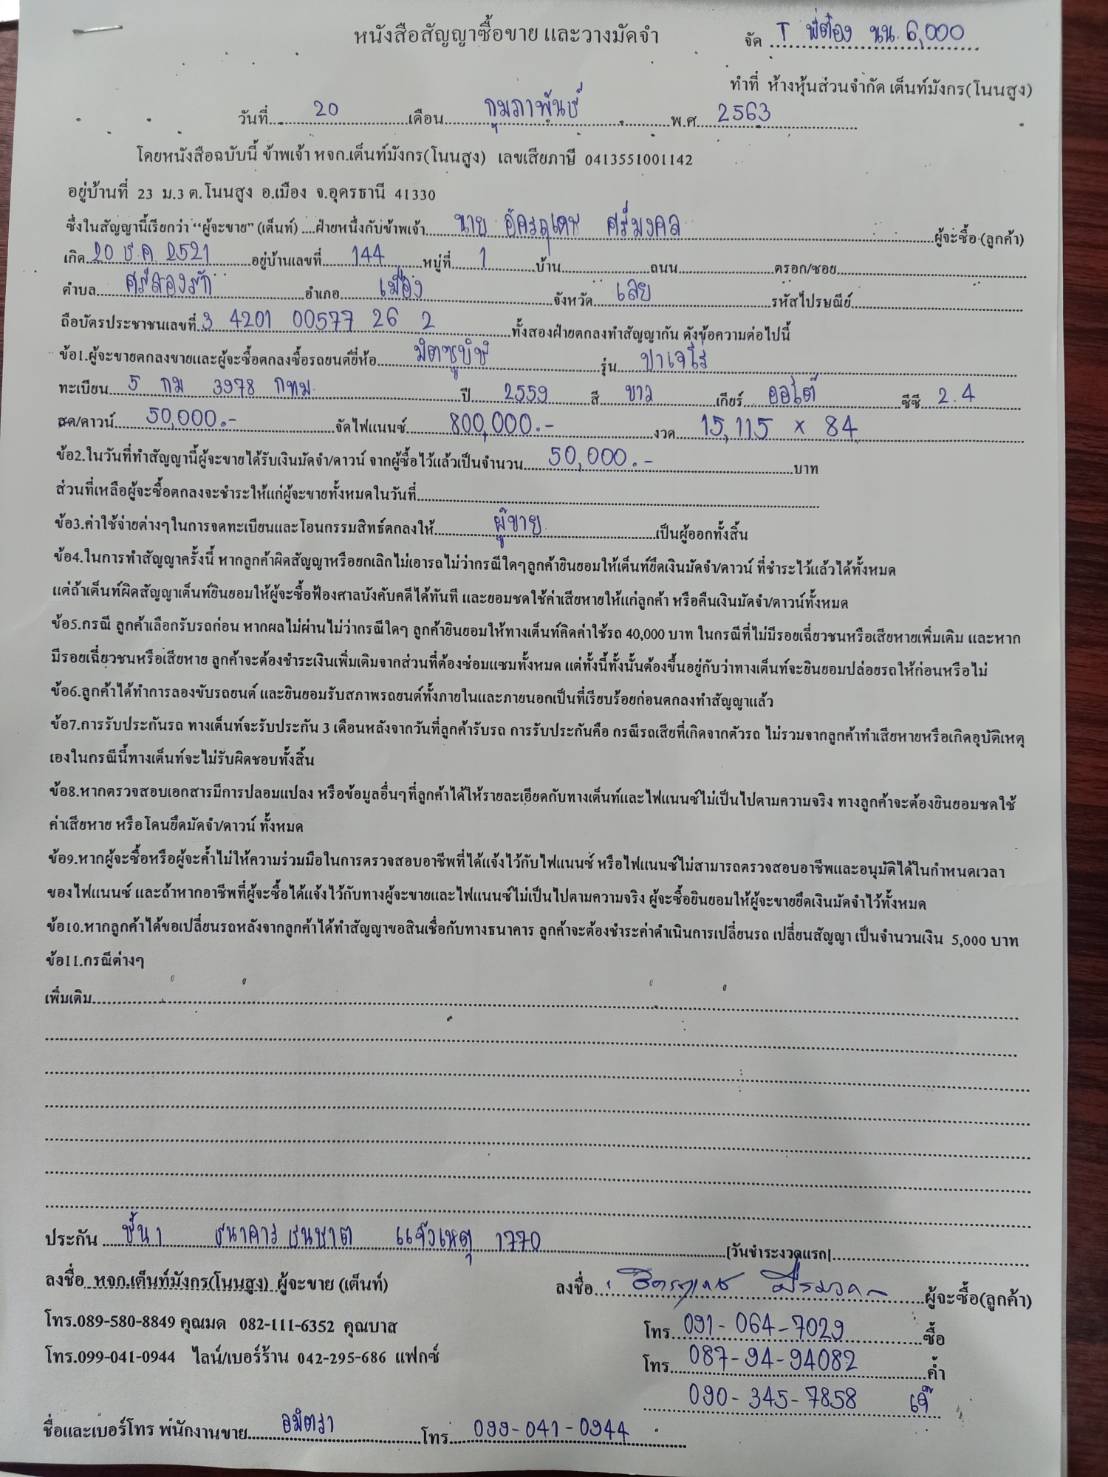 หนังสือสัญญาซื้อขาย และวางมัดจำ
จัด T พี่ต๋อง นน. 6,000
ทำที่ ห้างหุ้นส่วนจำกัด เต็นท์มังกร(โนนสูง)
วันที่ 20 เดือน กุมภาพันธ์ พ.ศ. 2563
โดยหนังสือฉบับนี้ ข้าพเจ้า หจก.เต็นท์มังกร(โนนสูง) เลขเสียภาษี 0413551001142
อยู่บ้านที่ 23 ม.3 ต.โนนสูง อ.เมือง จ.อุดรธานี 41330
ซึ่งในสัญญานี้เรียกว่า "ผู้จะขาย" (เต็นท์) ....ฝ่ายหนึ่งกับข้าพเจ้า นาย อัครเดช ศรีมงคล ผู้จะซื้อ (ลูกค้า)
เกิด 20 ธ.ค. 2521 อยู่บ้านเลขที่ 144 หมู่ที่ 1 บ้าน ถนน ตรอก/ซอย
ตำบล ศรีสองรัก อำเภอ เมือง จังหวัด เลย รหัสไปรษณีย์
ถือบัตรประชาชนเลขที่ 3 4201 00577 26 2 ทั้งสองฝ่ายตกลงทำสัญญากัน ดังข้อความต่อไปนี้
ข้อ1.ผู้จะขายตกลงขายและผู้จะซื้อตกลงซื้อรถยนต์ยี่ห้อ มิตซูบิชิ รุ่น ปาเจโร่
ทะเบียน 5 กม 3978 กทม. ปี 2559 สี ขาว เกียร์ ออโต้ ซีซี 2.4
สด/ดาวน์ 50,000.- จัดไฟแนนซ์ 800,000.- งวด 15,115 x 84
ข้อ2.ในวันที่ทำสัญญานี้ผู้จะขายได้รับเงินมัดจำ/ดาวน์ จากผู้ซื้อไว้แล้วเป็นจำนวน 50,000.- บาท
ส่วนที่เหลือผู้จะซื้อตกลงจะชำระให้แก่ผู้จะขายทั้งหมดในวันที่
ข้อ3.ค่าใช้จ่ายต่างๆในการจดทะเบียนและโอนกรรมสิทธ์ตกลงให้ ผู้ขาย เป็นผู้ออกทั้งสิ้น
ข้อ4.ในการทำสัญญาครั้งนี้ หากลูกค้าผิดสัญญาหรือยกเลิกไม่เอารถไม่ว่ากรณีใดๆลูกค้ายินยอมให้เต็นท์ยึดเงินมัดจำ/ดาวน์ ที่ชำระไว้แล้วได้ทั้งหมด
แต่ถ้าเต็นท์ผิดสัญญาเต็นท์ยินยอมให้ผู้จะซื้อฟ้องศาลบังคับคดีได้ทันที และยอมชดใช้ค่าเสียหายให้แก่ลูกค้า หรือคืนเงินมัดจำ/ดาวน์ทั้งหมด
ข้อ5.กรณี ลูกค้าเลือกรับรถก่อน หากผลไม่ผ่านไม่ว่ากรณีใดๆ ลูกค้ายินยอมให้ทางเต็นท์คิดค่าใช้รถ 40,000 บาท ในกรณีที่ไม่มีรอยเฉี่ยวชนหรือเสียหายเพิ่มเติม และหาก
มีรอยเฉี่ยวชนหรือเสียหาย ลูกค้าจะต้องชำระเงินเพิ่มเติมจากส่วนที่ต้องซ่อมแซมทั้งหมด แต่ทั้งนี้ทั้งนั้นต้องขึ้นอยู่กับว่าทางเต็นท์จะยินยอมปล่อยรถให้ก่อนหรือไม่
ข้อ6.ลูกค้าได้ทำการลองขับรถยนต์ และยินยอมรับสภาพรถยนต์ทั้งภายในและภายนอกเป็นที่เรียบร้อยก่อนตกลงทำสัญญาแล้ว
ข้อ7.การรับประกันรถ ทางเต็นท์จะรับประกัน 3 เดือนหลังจากวันที่ลูกค้ารับรถ การรับประกันคือ กรณีรถเสียที่เกิดจากตัวรถ ไม่รวมจากลูกค้าทำเสียหายหรือเกิดอุบัติเหตุ
เองในกรณีนี้ทางเต็นท์จะไม่รับผิดชอบทั้งสิ้น
ข้อ8.หากตรวจสอบเอกสารมีการปลอมแปลง หรือข้อมูลอื่นๆที่ลูกค้าได้ให้รายละเอียดกับทางเต็นท์และไฟแนนซ์ไม่เป็นไปตามความจริง ทางลูกค้าจะต้องยินยอมชดใช้
ค่าเสียหาย หรือโดนยึดมัดจำ/ดาวน์ ทั้งหมด
ข้อ9.หากผู้จะซื้อหรือผู้จะค้ำไม่ให้ความร่วมมือในการตรวจสอบอาชีพที่ได้แจ้งไว้กับไฟแนนซ์ หรือไฟแนนซ์ไม่สามารถตรวจสอบอาชีพและอนุมัติได้ในกำหนดเวลา
ของไฟแนนซ์ และถ้าหากอาชีพที่ผู้จะซื้อได้แจ้งไว้กับทางผู้จะขายและไฟแนนซ์ไม่เป็นไปตามความจริง ผู้จะซื้อยินยอมให้ผู้จะขายยึดเงินมัดจำไว้ทั้งหมด
ข้อ10.หากลูกค้าได้ขอเปลี่ยนรถหลังจากลูกค้าได้ทำสัญญาขอสินเชื่อกับทางธนาคาร ลูกค้าจะต้องชำระค่าดำเนินการเปลี่ยนรถ เปลี่ยนสัญญา เป็นจำนวนเงิน 5,000 บาท
ข้อ11.กรณีต่างๆ
เพิ่มเติม
ประกัน ชั้น 1 ธนาคารธนชาต แจ้งเหตุ 1770 [วันชำระงวดแรก]
ลงชื่อ หจก.เต็นท์มังกร(โนนสูง) ผู้จะขาย (เต็นท์) ลงชื่อ ผู้จะซื้อ(ลูกค้า)
โทร.089-580-8849 คุณมด 082-111-6352 คุณบาส โทร. 091-064-7029 ซื้อ
โทร.099-041-0944 ไลน์/เบอร์ร้าน 042-295-686 แฟกซ์ โทร. 087-94-94082 ค้ำ
090-345-7858 เจ๊
ชื่อและเบอร์โทร พนักงานขาย อมิตรา โทร. 099-041-0944